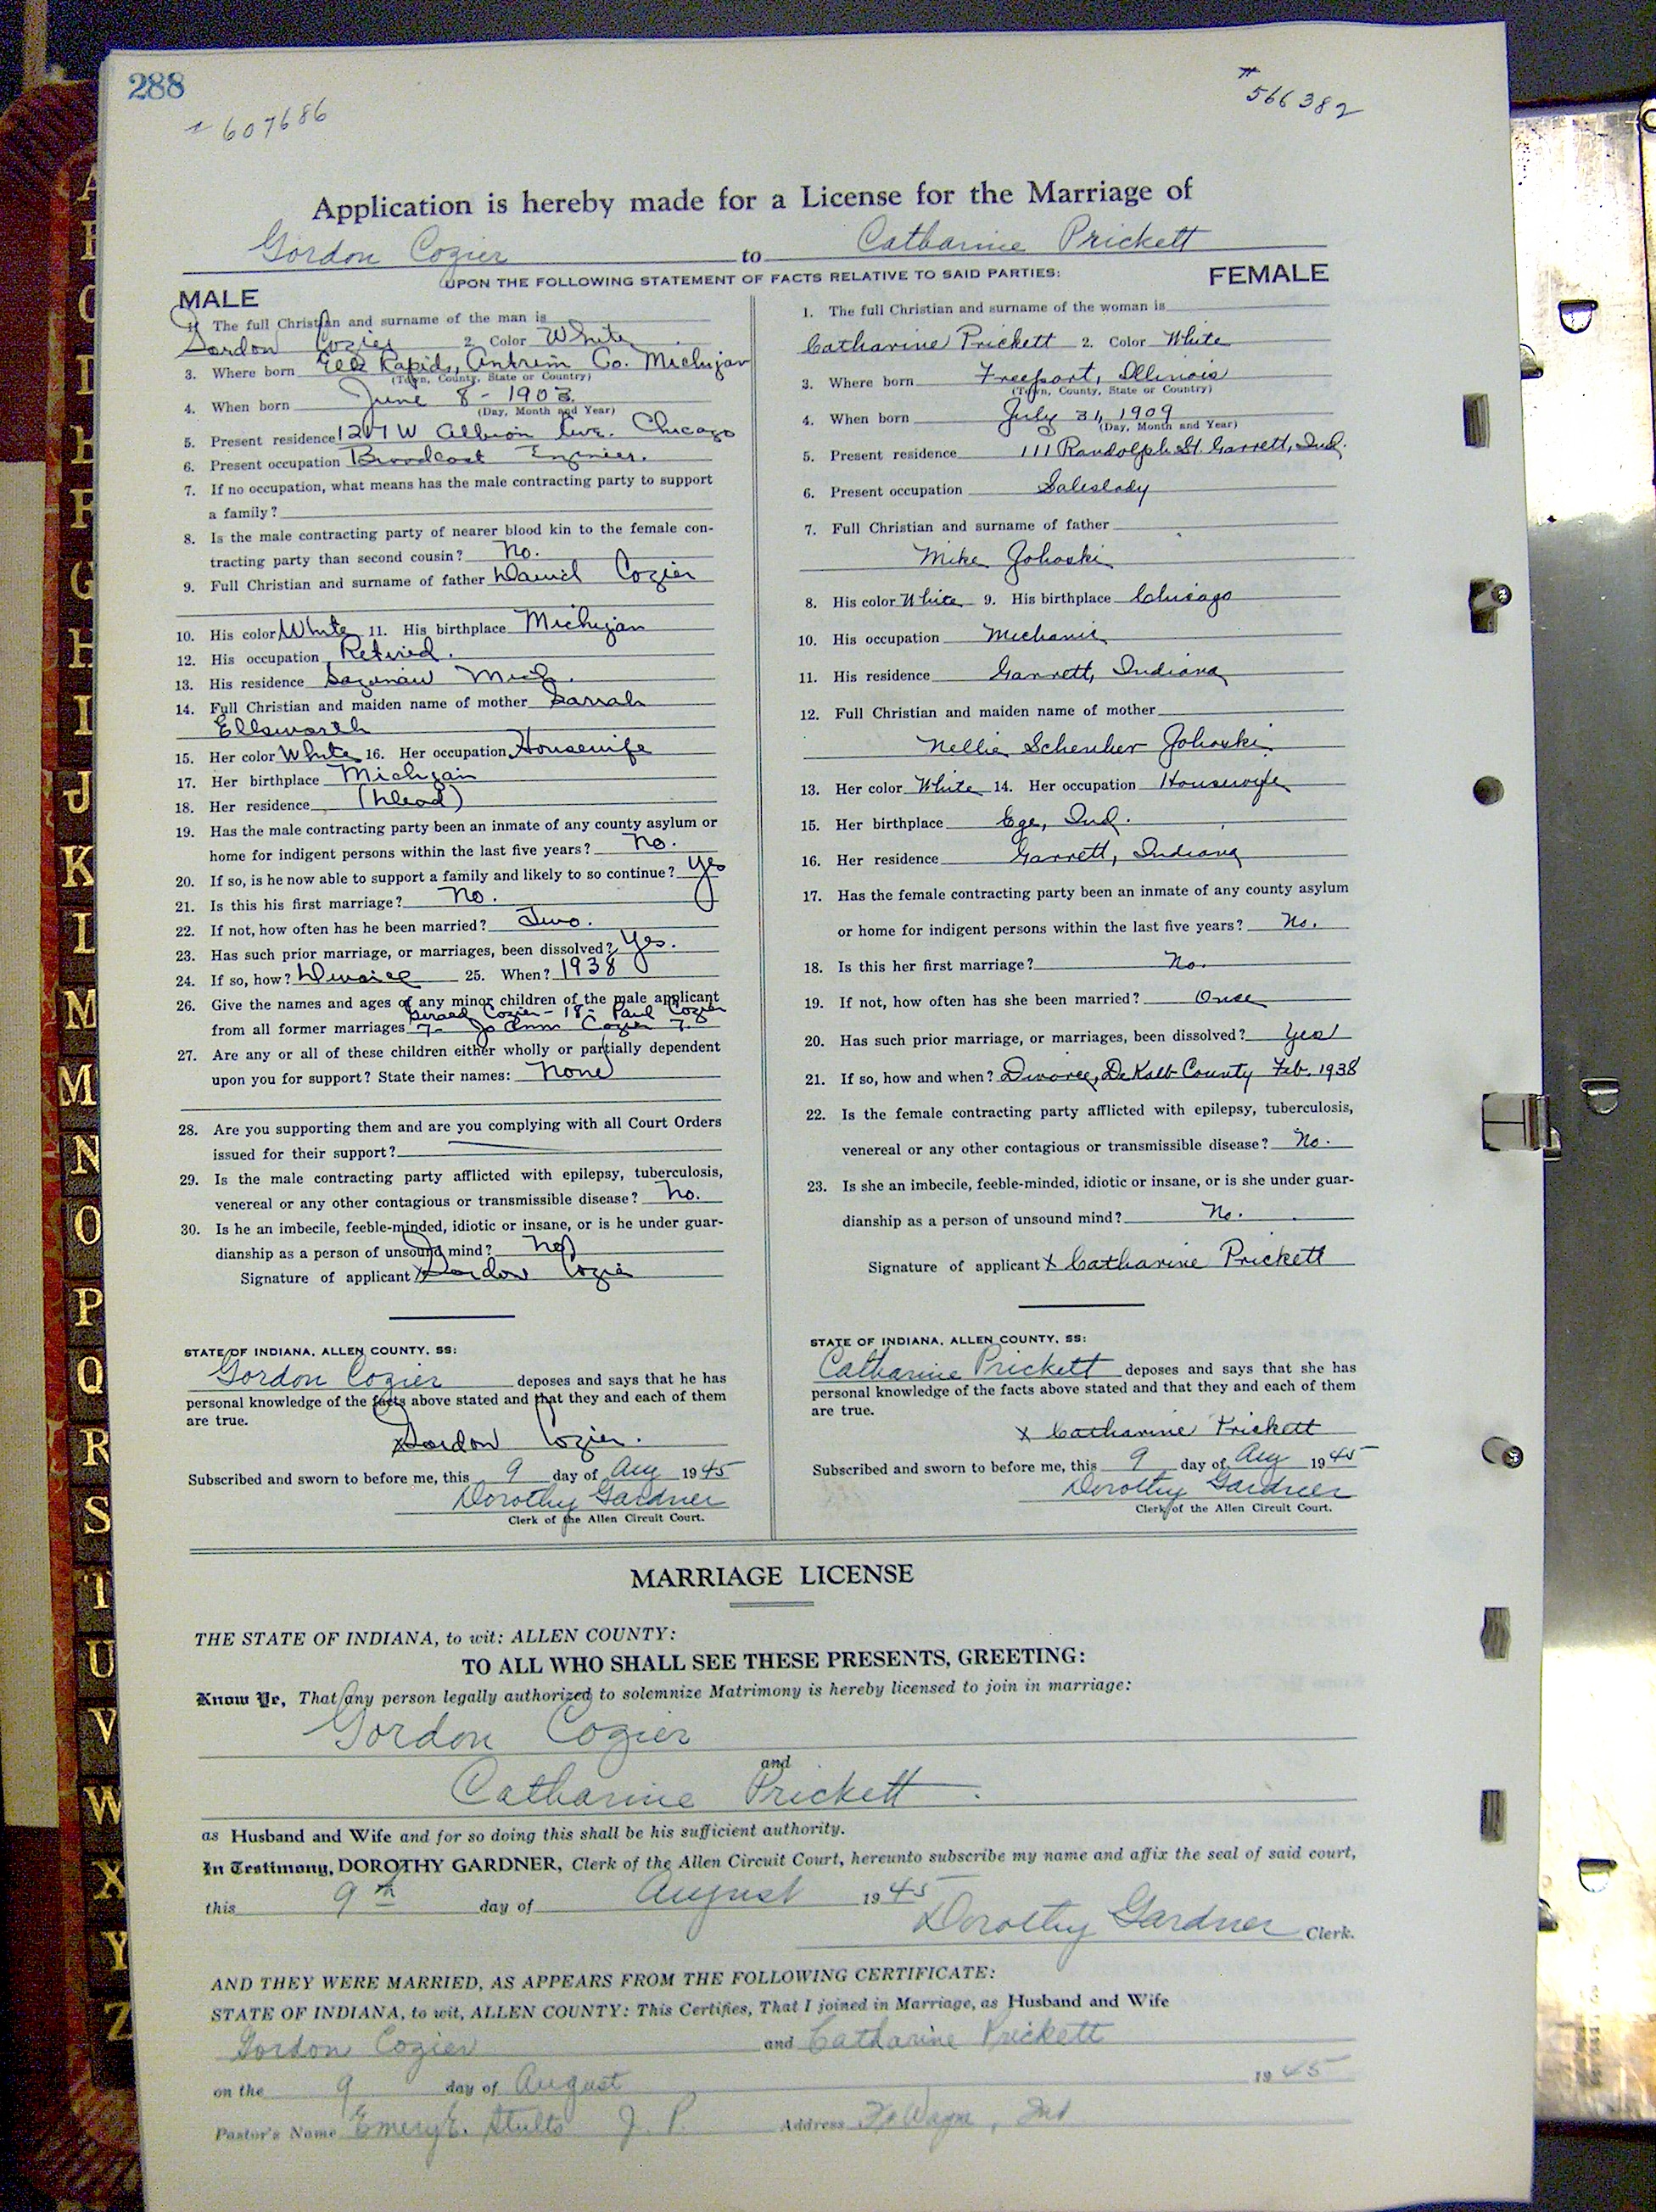 288
607686
#566382
Application is hereby made for a License for the Marriage of
Gordon Cozier to Catharine Prickett
UPON THE FOLLOWING STATEMENT OF FACTS RELATIVE TO SAID PARTIES:
MALE
1. The full Christian and surname of the man is
Gordon Cozier 2. Color White
3. Where born Elk Rapids, Antrim Co. Michigan
(Town, County, State or Country)
4. When born June 8 - 1903
(Day, Month and Year)
5. Present residence W Albion Ave. Chicago
6. Present occupation Broadcast Engineer.
7. If no occupation, what means has the male contracting party to support
a family?
8. Is the male contracting party of nearer blood kin to the female con-
tracting party than second cousin? No.
9. Full Christian and surname of father Daniel Cozier
10. His color White 11. His birthplace Michigan
12. His occupation Retired.
13. His residence Saginaw Mich.
14. Full Christian and maiden name of mother Sarrah
Ellsworth
15. Her color White 16. Her occupation Housewife
17. Her birthplace Michigan
18. Her residence (Dead)
19. Has the male contracting party been an inmate of any county asylum or
home for indigent persons within the last five years? No.
20. If so, is he now able to support a family and likely to so continue? Yes
21. Is this his first marriage? No.
22. If not, how often has he been married? Two.
23. Has such prior marriage, or marriages, been dissolved? Yes.
24. If so, how? Divorce 25. When? 1938
26. Give the names and ages of any minor children of the male applicant
Gerard Cozier - 18 - Paul Cozier
from all former marriages 7 - Jo Ann Cozier 7.
27. Are any or all of these children either wholly or partially dependent
upon you for support? State their names: None
28. Are you supporting them and are you complying with all Court Orders
issued for their support?
29. Is the male contracting party afflicted with epilepsy, tuberculosis,
venereal or any other contagious or transmissible disease? No.
30. Is he an imbecile, feeble-minded, idiotic or insane, or is he under guar-
dianship as a person of unsound mind? No
Signature of applicant x Gordon Cozier
STATE OF INDIANA, ALLEN COUNTY, SS:
Gordon Cozier deposes and says that he has
personal knowledge of the facts above stated and that they and each of them
are true.
x Gordon Cozier.
Subscribed and sworn to before me, this 9 day of Aug 1945
Dorothy Gardner
Clerk of the Allen Circuit Court.
FEMALE
1. The full Christian and surname of the woman is
Catharine Prickett 2. Color White
3. Where born Freeport, Illinois
(Town, County, State or Country)
4. When born July 31, 1909
(Day, Month and Year)
5. Present residence 111 Randolph St. Garrett, Ind.
6. Present occupation Saleslady
7. Full Christian and surname of father
Mike Johoski
8. His color White 9. His birthplace Chicago
10. His occupation Mechanic
11. His residence Garrett, Indiana
12. Full Christian and maiden name of mother
Nellie Johoski
13. Her color White 14. Her occupation Housewife
15. Her birthplace Ege, Ind.
16. Her residence Garrett, Indiana
17. Has the female contracting party been an inmate of any county asylum
or home for indigent persons within the last five years? No.
18. Is this her first marriage? No.
19. If not, how often has she been married? Once
20. Has such prior marriage, or marriages, been dissolved? Yes
21. If so, how and when? Divorce, DeKalb County Feb. 1938
22. Is the female contracting party afflicted with epilepsy, tuberculosis,
venereal or any other contagious or transmissible disease? No.
23. Is she an imbecile, feeble-minded, idiotic or insane, or is she under guar-
dianship as a person of unsound mind? No.
Signature of applicant x Catharine Prickett
STATE OF INDIANA, ALLEN COUNTY, SS:
Catharine Prickett deposes and says that she has
personal knowledge of the facts above stated and that they and each of them
are true.
x Catharine Prickett
Subscribed and sworn to before me, this 9 day of Aug 1945
Dorothy Gardner
Clerk of the Allen Circuit Court.
MARRIAGE LICENSE
THE STATE OF INDIANA, to wit: ALLEN COUNTY:
TO ALL WHO SHALL SEE THESE PRESENTS, GREETING:
Know Ye, That any person legally authorized to solemnize Matrimony is hereby licensed to join in marriage:
Gordon Cozier
and
Catharine Prickett
as Husband and Wife and for so doing this shall be his sufficient authority.
In Testimony, DOROTHY GARDNER, Clerk of the Allen Circuit Court, hereunto subscribe my name and affix the seal of said court,
this 9th day of August 1945
Dorothy Gardner Clerk.
AND THEY WERE MARRIED, AS APPEARS FROM THE FOLLOWING CERTIFICATE:
STATE OF INDIANA, to wit, ALLEN COUNTY: This Certifies, That I joined in Marriage, as Husband and Wife
Gordon Cozier and Catharine Prickett
on the 9 day of August 1945
Pastor's Name Emery E. Stults J. P. Address Ft Wayne, Ind
A
B
C
D
E
F
G
H
I
J
K
L
M
M
N
O
P
Q
R
S
T
U
V
W
X
Y
Z